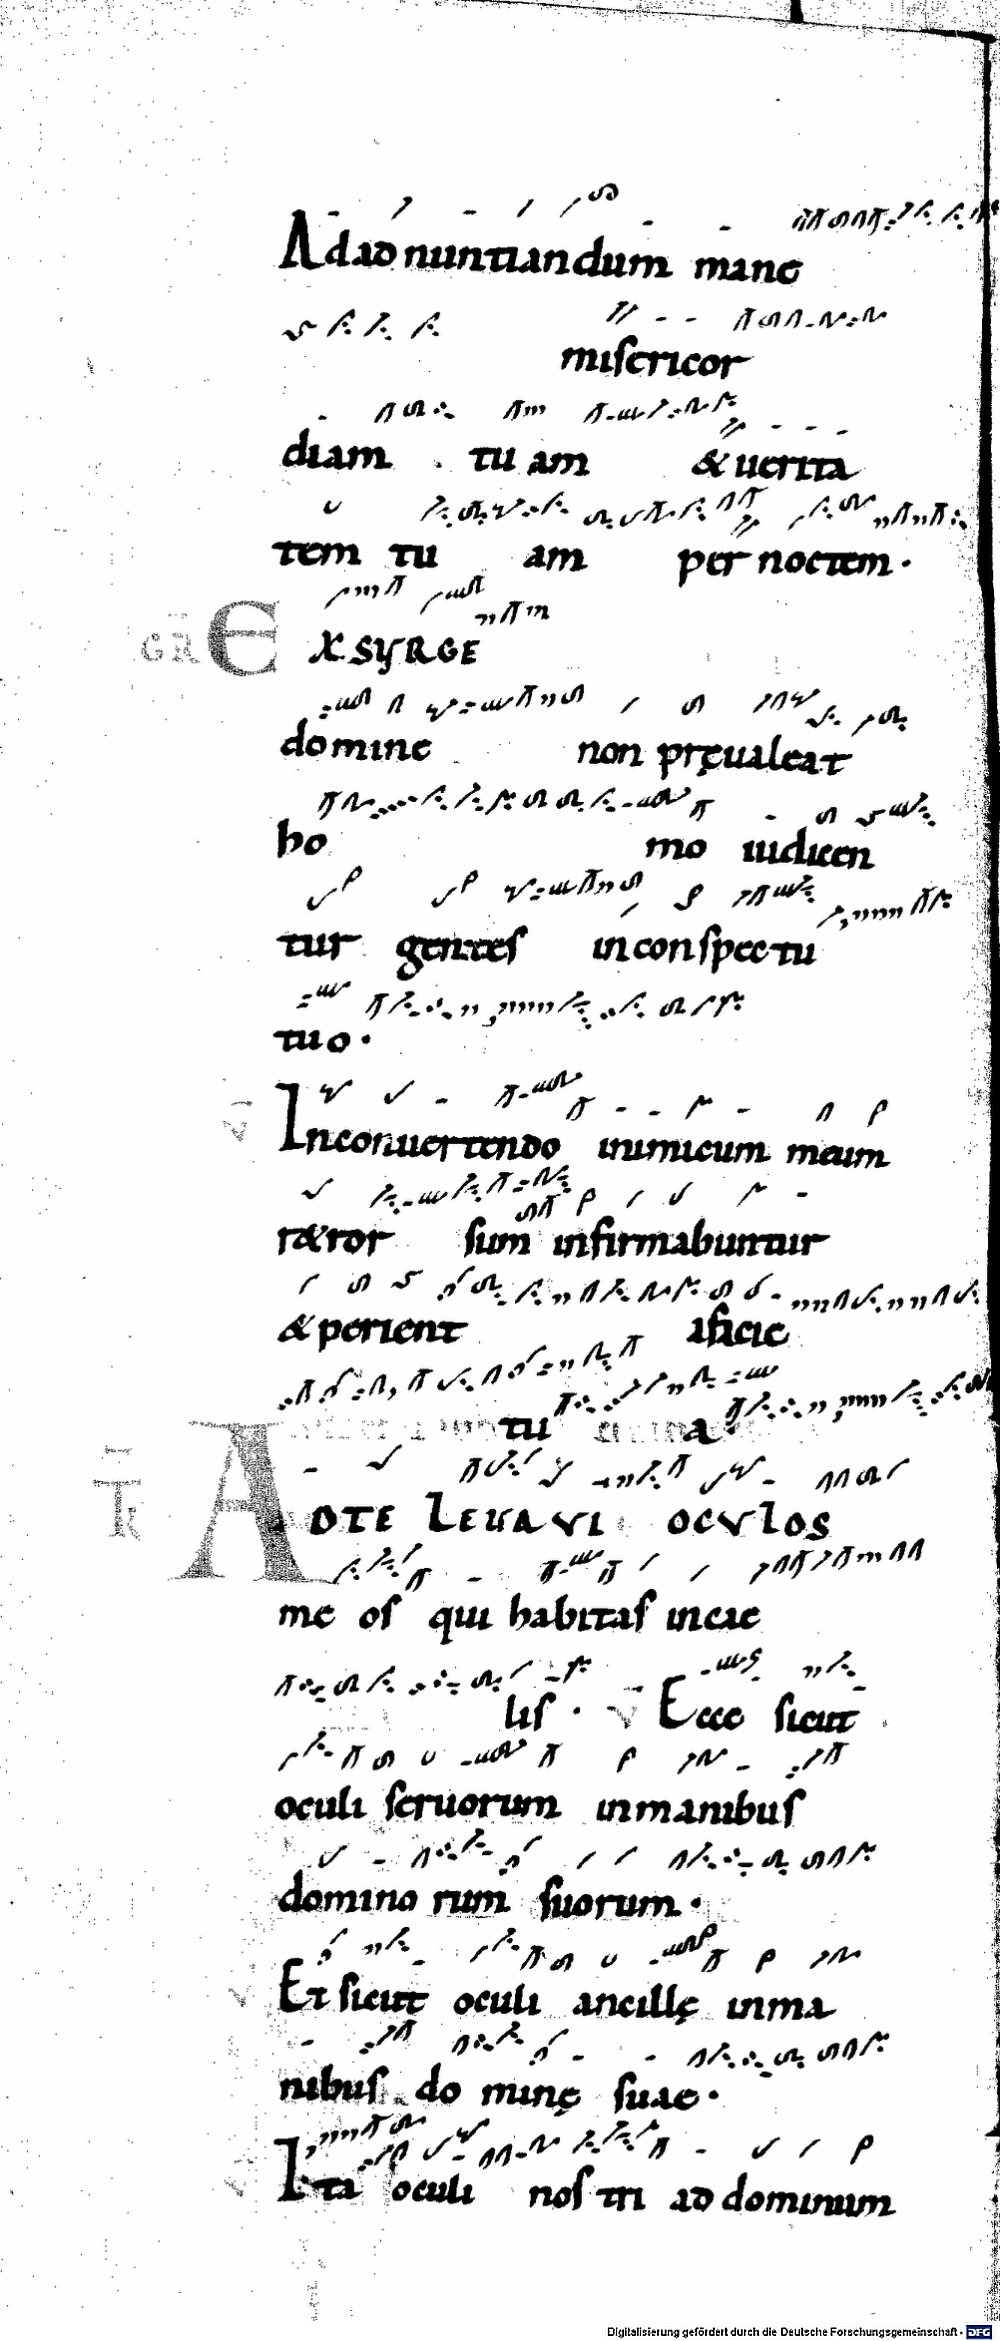 Ad adnuntiandum mane
misericor
diam tu am & uerita
tem tu am per noctem·
GR EXSURGE
domine non pręualeat
ho mo iudicen
tur gentes in conspectu
tuo·
V In conuertendo inimicum meum
r&ror sum infirmabuntur
& perient a facie
tu a
TR AD TE LEUAVI OCVLOS
me os qui habitas in cae
lis· V Ecce sicut
oculi seruorum in manibus
domino rum suorum·
V Et sicut oculi ancillę in ma
nibus do minę suae·
V Ita oculi nos tri ad dominum
Digitalisierung gefördert durch die Deutsche Forschungsgemeinschaft · DFG